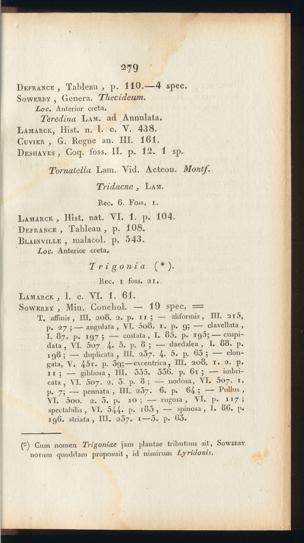 279
DEFRANCE, Tableau, p. 110.—4 spec.
SOWERBY, Genera. Thecideum.
Loc. Anterior creta.
Teredina LAM. ad Annulata.
LAMARCK, Hist. n. l. c. V. 438.
CUVIER, G. Regne an. III. 161.
DESHAYES, Coq. foss. II. p. 12. 1 sp.
Tornatella Lam. Vid. Acteon. Montf.
Tridacne, LAM.
Rec. 6. Foss. 1.
LAMARCK, Hist. nat. VI. 1. p. 104.
DEFRANCE, Tableau, p. 108.
BLAINVILLE, malacol. p. 543.
Loc. Anterior creta.
Trigonia (*).
Rec. 1 foss. 21.
LAMARCK, l. c. VI. 1. 61.
SOWERBY, Min. Conchol. — 19 spec. =
T. affinis, III. 208. 2. p. 11; — aliformis, III. 215,
p. 27; — angulata, VI. 508. 1. p. 9; — clavellata,
I. 87. p. 197; — costata, I. 85. p. 195; — cuspi-
data, VI. 507 4. 5. p. 8; — daedalea, I. 88. p.
198; — duplicata, III. 237. 4. 5. p. 63; — elon-
gata, V. 431. p. 39; — excentrica, III. 208. 1. 2. p.
11; — gibbosa, III. 235. 236. p. 61; — imbri-
cata, VI. 507. 2. 3. p. 8; — nodosa, VI. 507. 1.
p. 7; — pennata, III. 237. 6. p. 64; — Pullus,
VI. 500. 2. 3. p. 10; — rugosa, VI. p. 117;
spectabilis, VI. 544. p. 183, — spinosa, I. 86. p.
196. striata, III. 237. 1—3. p. 63.
(*) Cum nomen Trigoniae jam plantae tributum sit, SOWERBY
novum quoddam proposuit, id nimirum Lyridonis.